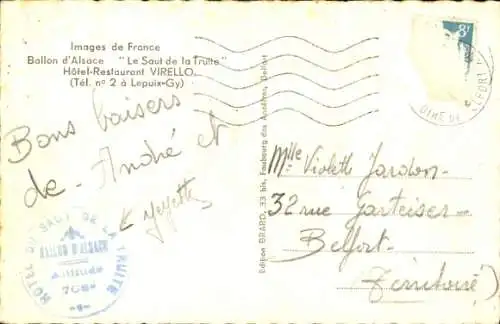 Images de France
Ballon d'Alsace "Le Saut de la Truite"
Hôtel-Restaurant VIRELLO
(Tél. nº 2 à Lepuix-Gy)
8f
Bons baisers
de André et
Edition BRARD, 33 bis, Faubourg des Ancêtres, Belfort
Mlle Violette
32 rue
Belfort
(Territoire)
HÔTEL DU SAUT DE LA TRUITE
BALLON D'ALSACE
Altitude